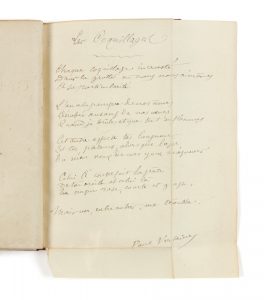 Les Coquillages
Chaque coquillage incrusté
Dans la grotte où nous nous aimâmes
A sa particularité.
L'un a la pourpre de nos âmes
Dérobée au sang de nos cœurs
Quand je brûle et que tu t'enflammes
Cet autre affecte tes langueurs
Et tes pâleurs alors que, lasse,
Tu m'en veux de mes yeux moqueurs
Celui-ci contrefait la grâce
De ton oreille et celui-là
Ta nuque rose, courte et grasse,
Mais un, entre autres, me troubla.
Paul Verlaine